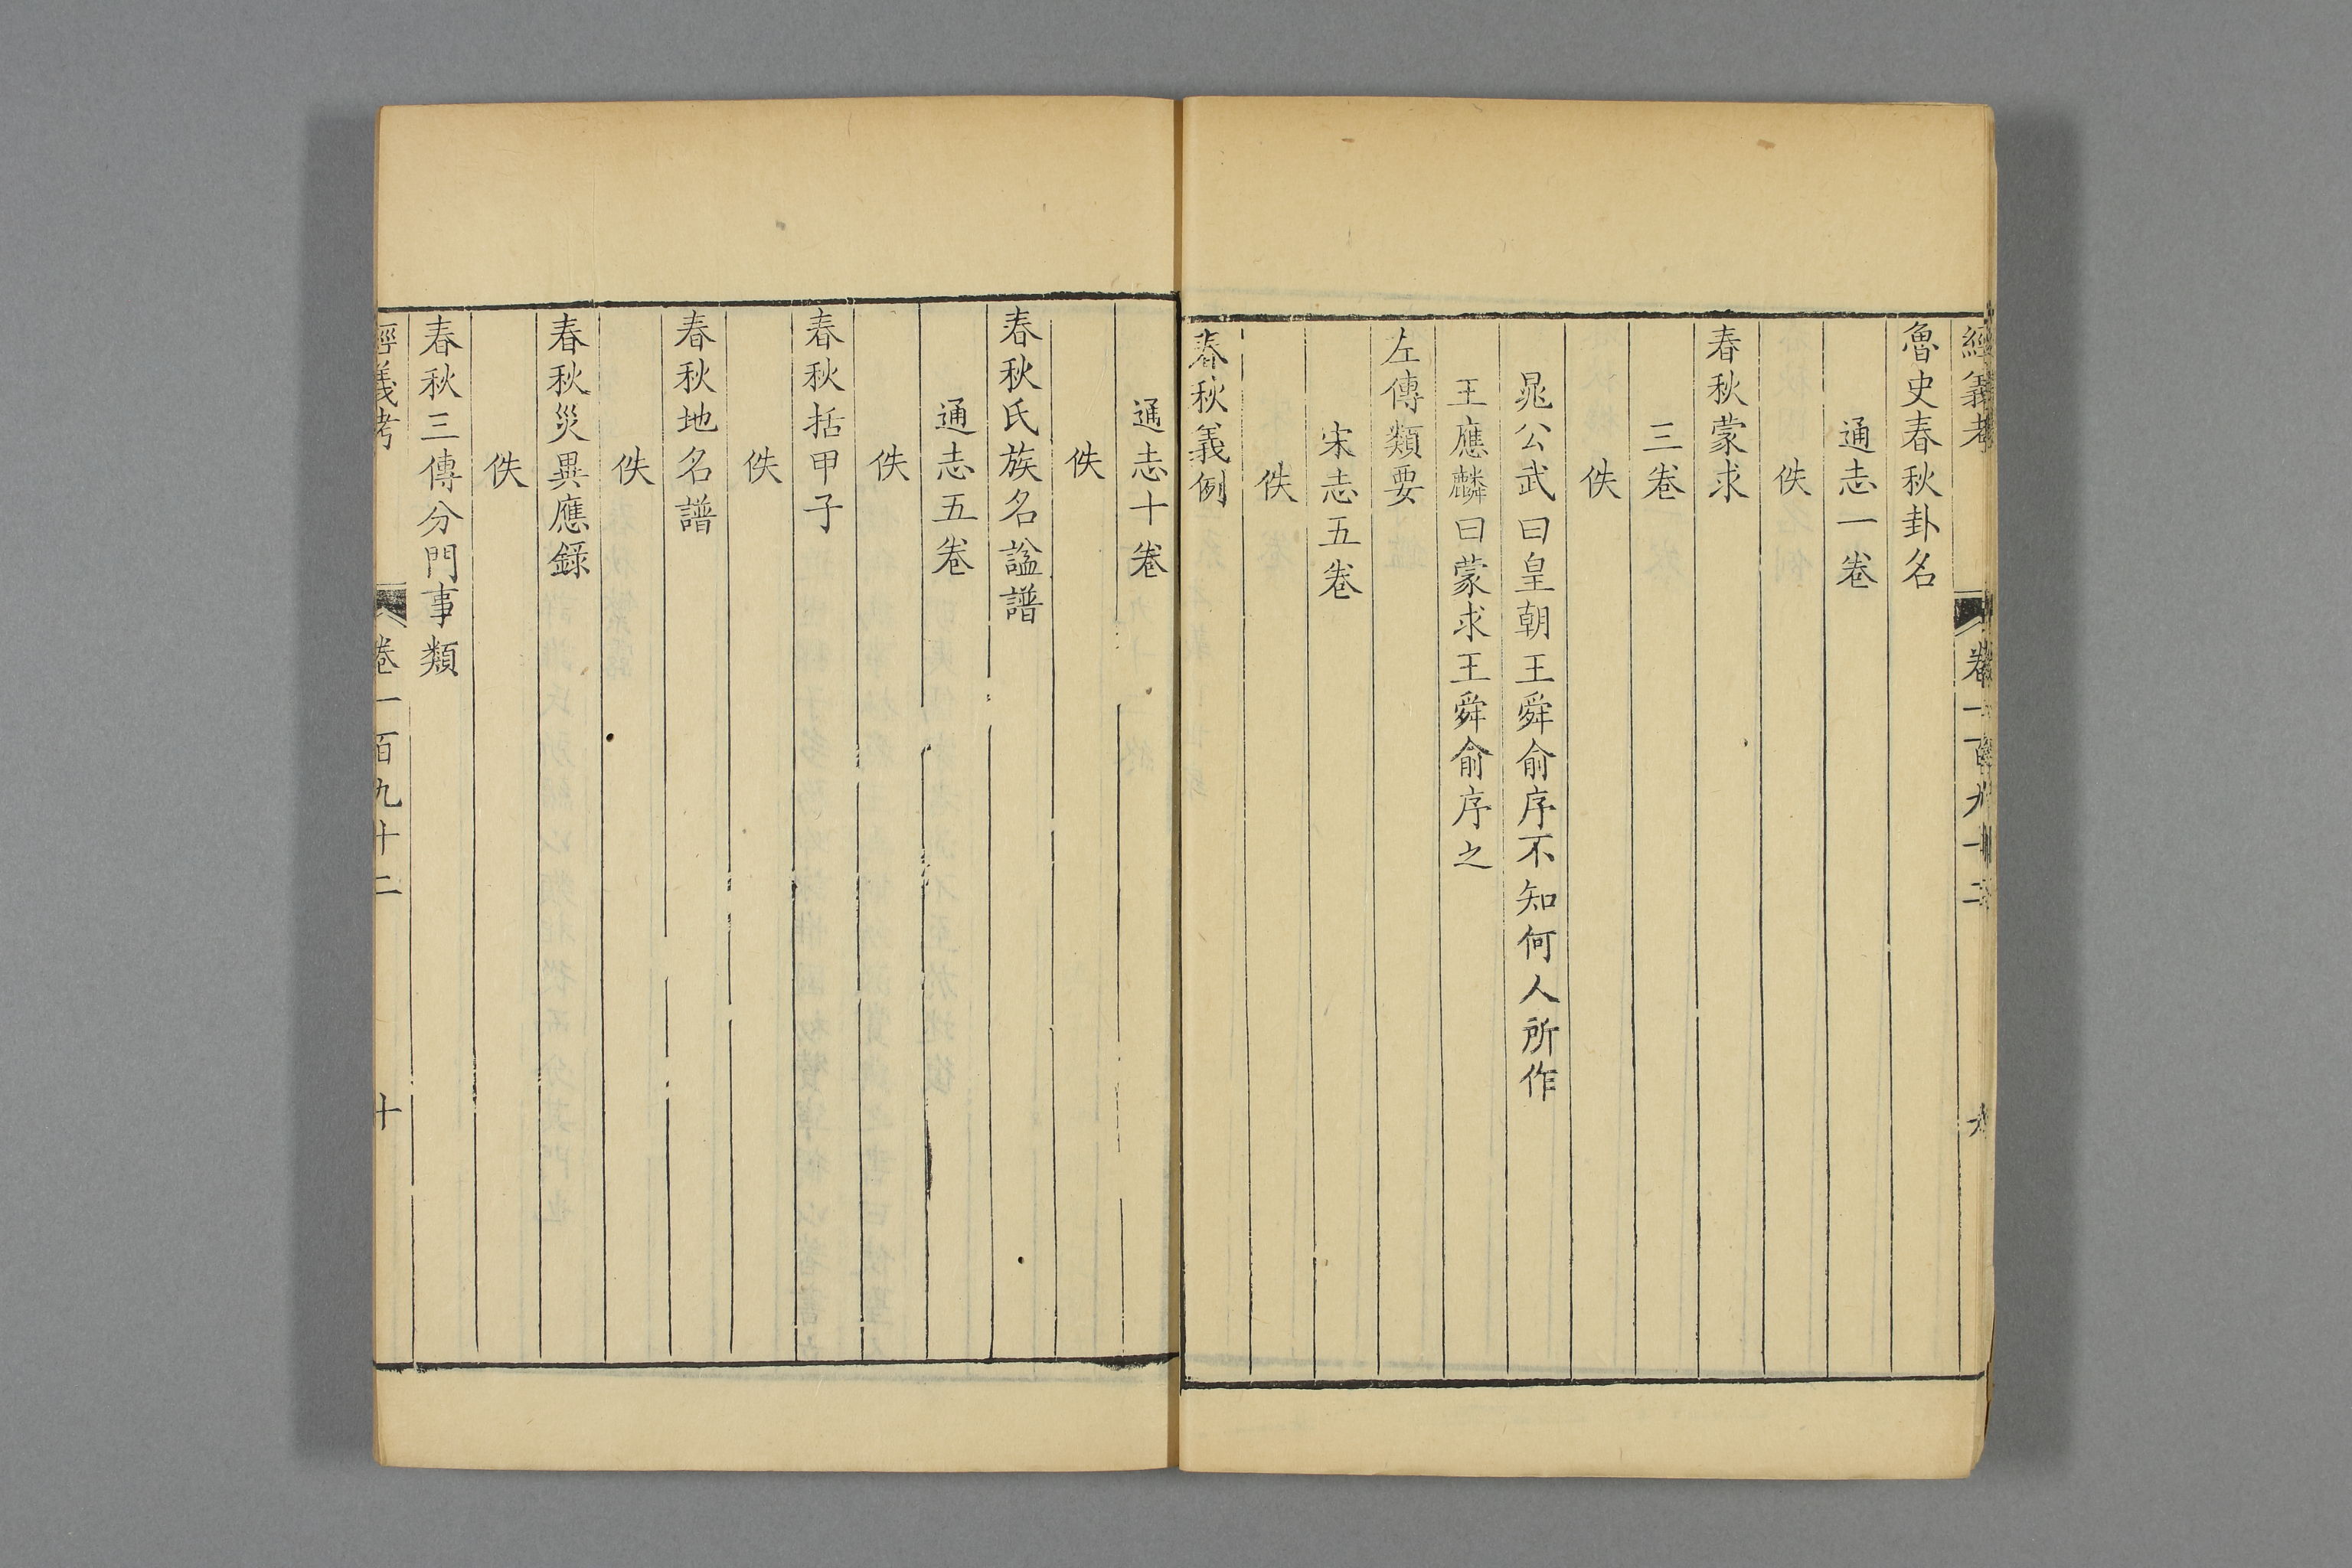 經義考 卷一百九十二 九
魯史春秋卦名
通志一卷
佚
春秋蒙求
三卷
佚
晁公武曰皇朝王舜俞序不知何人所作
王應麟曰蒙求王舜俞序之
左傳類要
宋志五卷
佚
春秋義例
通志十卷
佚
春秋氏族名諡譜
通志五卷
佚
春秋括甲子
佚
春秋地名譜
佚
春秋災異應錄
佚
春秋三傳分門事類
經義考 卷一百九十二 十